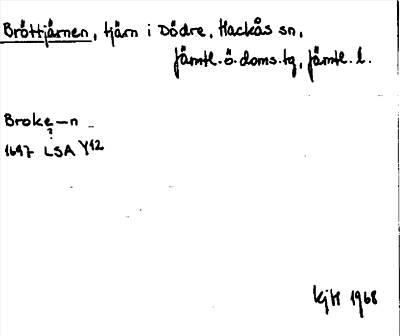 Bröttjärnen, tjärn i Dödre, Hackås sn,
Jämtl. ö. doms. tg, Jämtl. l.
Broke-n
?
1697 LSA Y12
KJH 1968